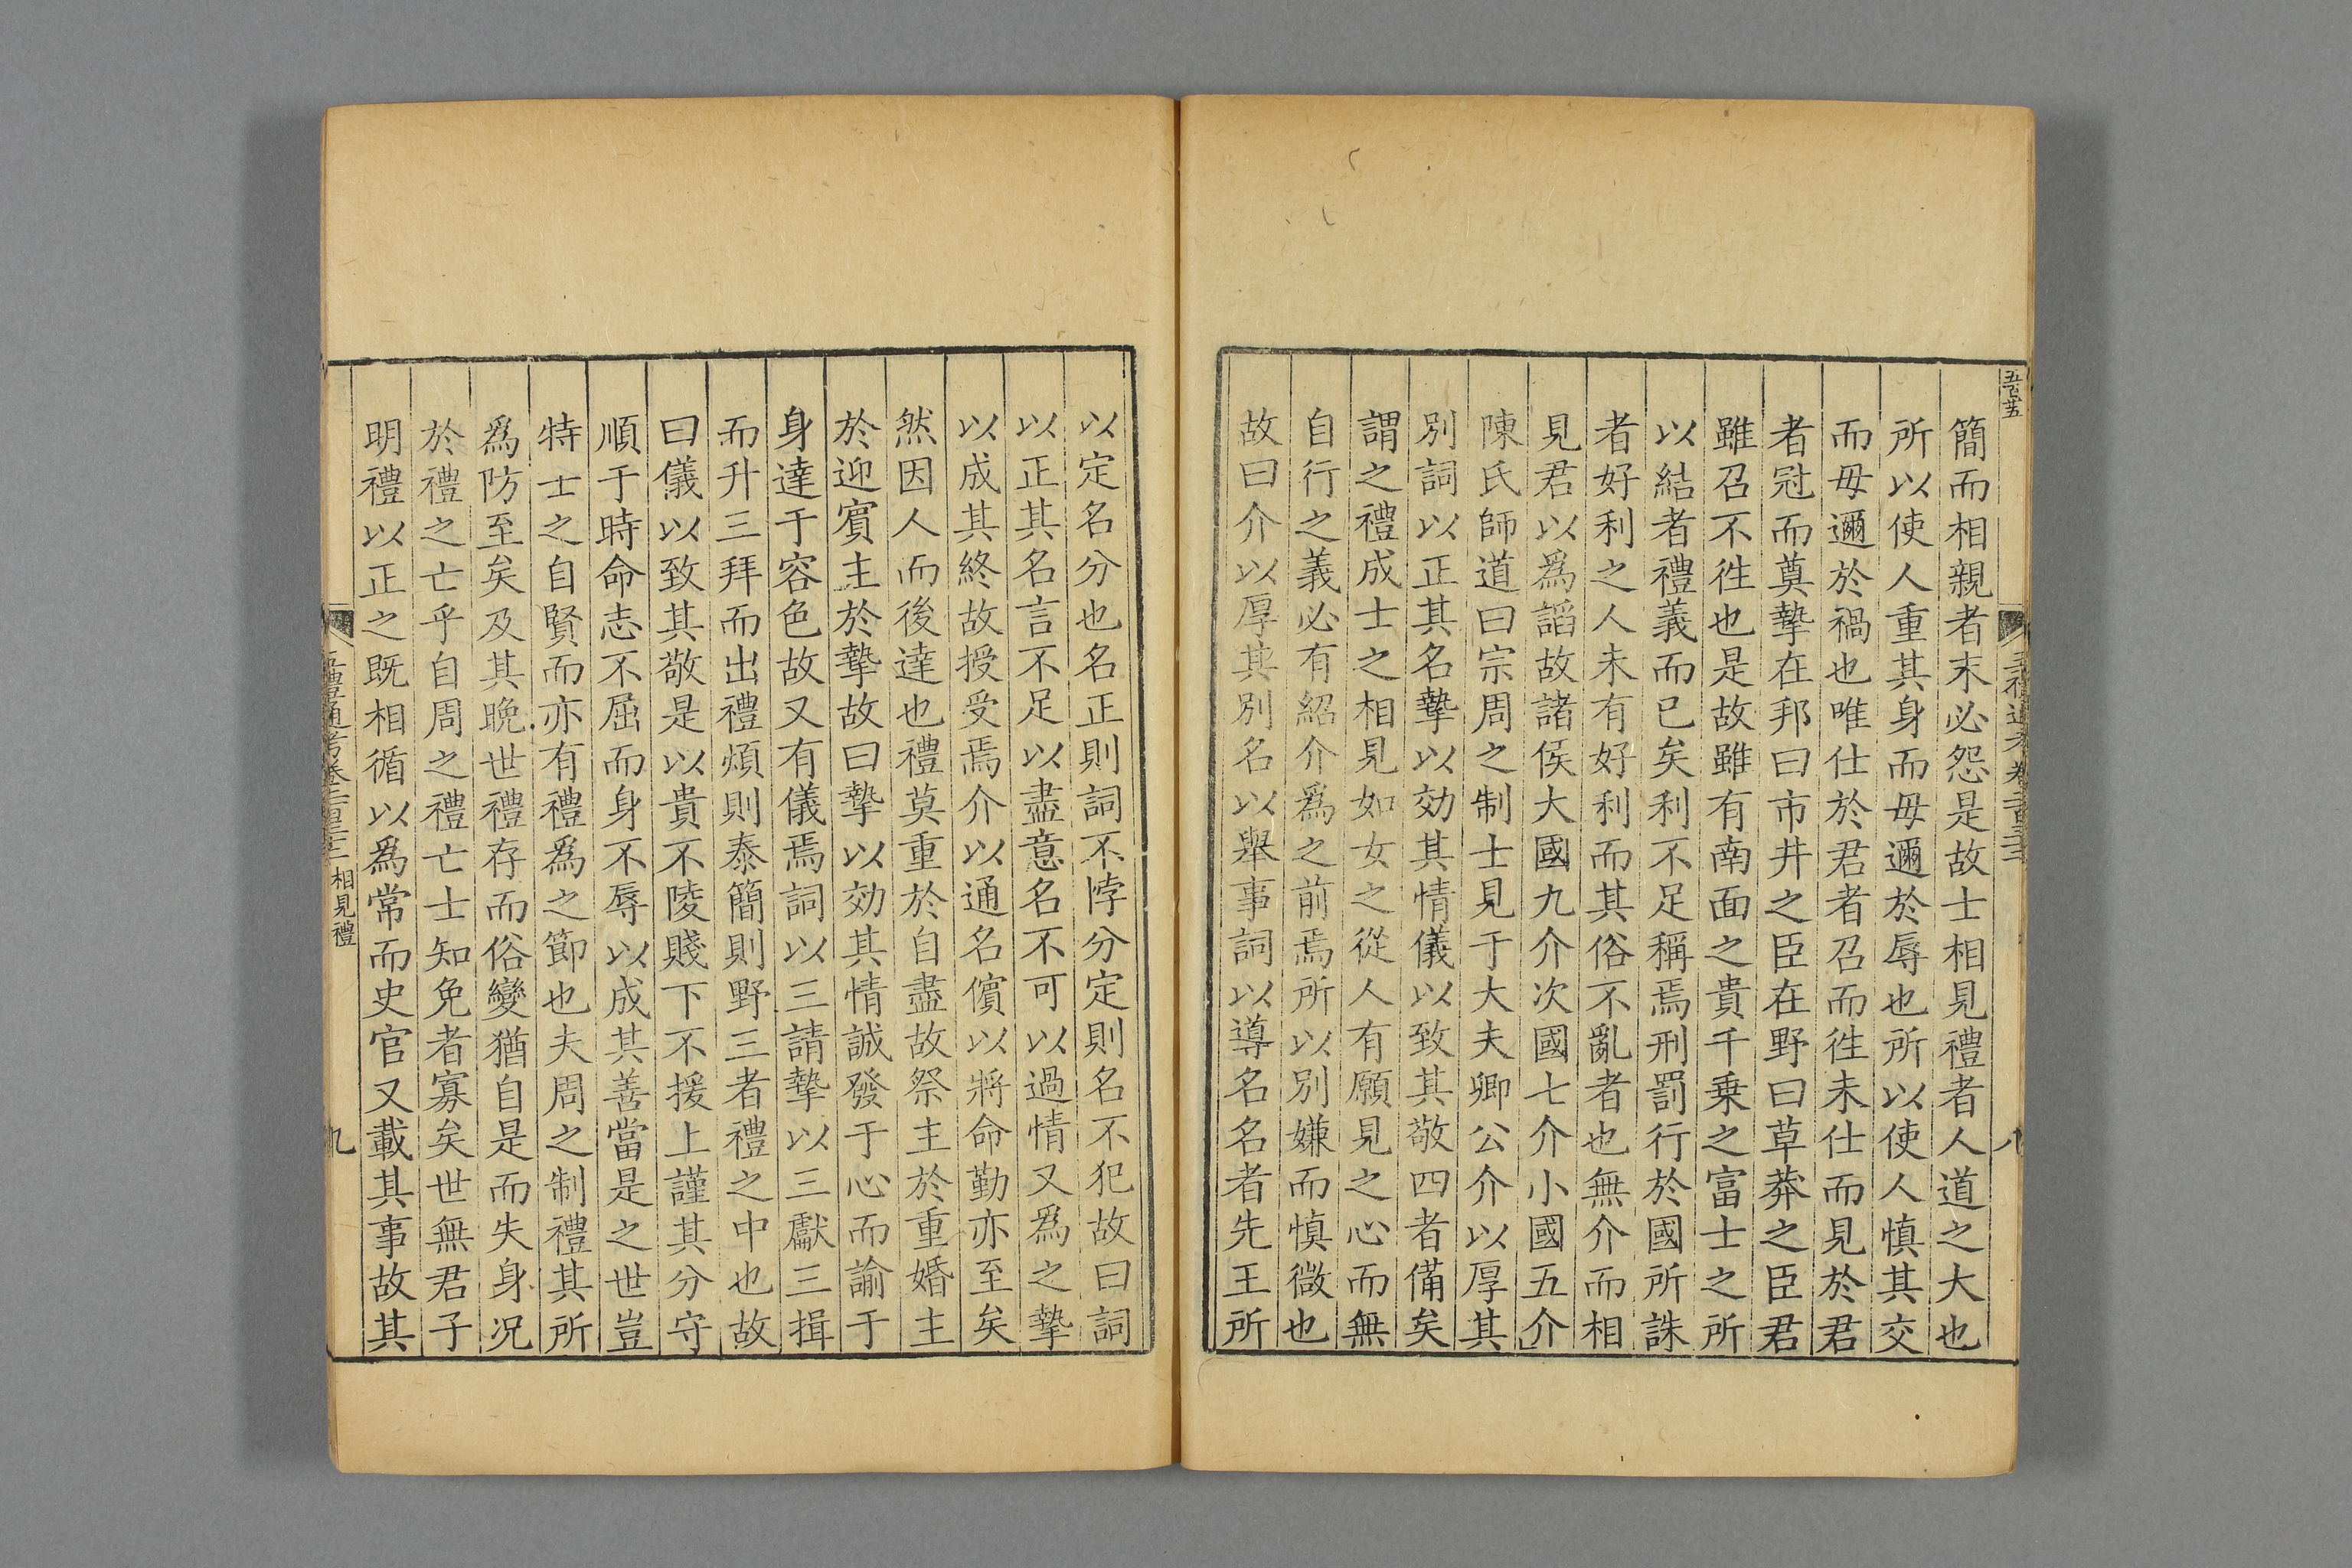 簡而相親者末必怨是故士相見禮者人道之大也
所以使人重其身而毋邇於辱也所以使人慎其交
而毋邇於禍也唯仕於君者召而徃未仕而見於君
者冠而奠摯在邦曰市井之臣在野曰草莽之臣君
雖召不徃也是故雖有南面之貴千乗之富士之所
以結者禮義而已矣利不足稱焉刑罰行於國所誅
者好利之人未有好利而其俗不亂者也無介而相
見君以爲謟故諸侯大國九介次國七介小國五介
陳氏師道曰宗周之制士見于大夫卿公介以厚其
別詞以正其名摯以効其情儀以致其敬四者備矣
謂之禮成士之相見如女之從人有願見之心而無
自行之義必有紹介爲之前焉所以別嫌而慎微也
故曰介以厚其別名以舉事詞以導名名者先王所
以定名分也名正則詞不悖分定則名不犯故曰詞
以正其名言不足以盡意名不可以過情又爲之摯
以成其終故授受焉介以通名儐以將命勤亦至矣
然因人而後達也禮莫重於自盡故祭主於重婚主
於迎賔主於摯故曰摯以効其情誠發于心而諭于
身達于容色故又有儀焉詞以三請摯以三獻三揖
而升三拜而出禮煩則泰簡則野三者禮之中也故
曰儀以致其敬是以貴不陵賤下不援上謹其分守
順于時命志不屈而身不辱以成其善當是之世豈
特士之自賢而亦有禮爲之節也夫周之制禮其所
爲防至矣及其晩世禮存而俗變猶自是而失身况
於禮之亡乎自周之禮亡士知免者寡矣世無君子
明禮以正之既相循以爲常而史官又載其事故其
相見禮
九